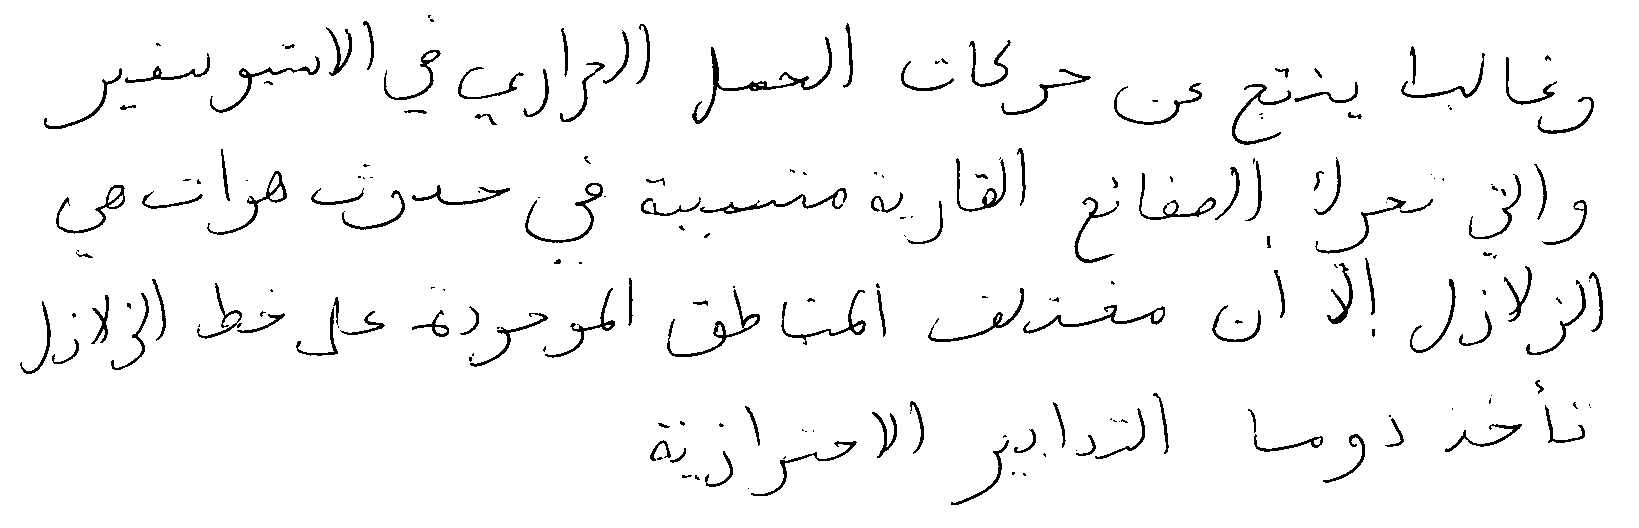 وغالبا ينتج عن حركات الحمل الحراري في الاستيوسفير
والتي تحرك الصفائح القارية متسببة في حدوث هزات هي
الزلازل إلا أن مختلف المناطق الموجودة على خط الزلازل
تأخذ دوما التدابير الاحترازية